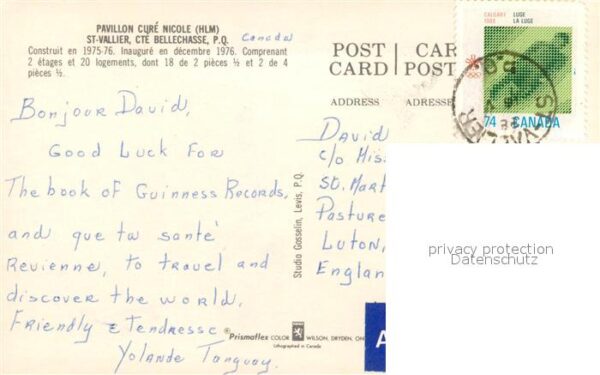 PAVILLON CURÉ NICOLE (HLM)
ST-VALLIER, CTÉ BELLECHASSE, P.Q. Canada
Construit en 1975-76. Inauguré en décembre 1976. Comprenant
2 étages et 20 logements, dont 18 de 2 pièces ½ et 2 de 4
pièces ½.
Bonjour David,
Good Luck For
The book of Guinness Records,
and que ta santé
Revienne, to travel and
discover the world.
Friendly & Tendresse
Yolande Tanguay.
Studio Gosselin, Levis, P.Q.
Prismaflex COLOR WILSON, DRYDEN, ON
Lithographed in Canada
POST CAR
CARD POST
ADDRESS ADRESSE
CALGARY
1988
LUGE
LA LUGE
74 CANADA
ST-VALLIER
P.Q.
David
c/o Miss
St. Mart
Pasture
Luton,
England
A
privacy protection
Datenschutz